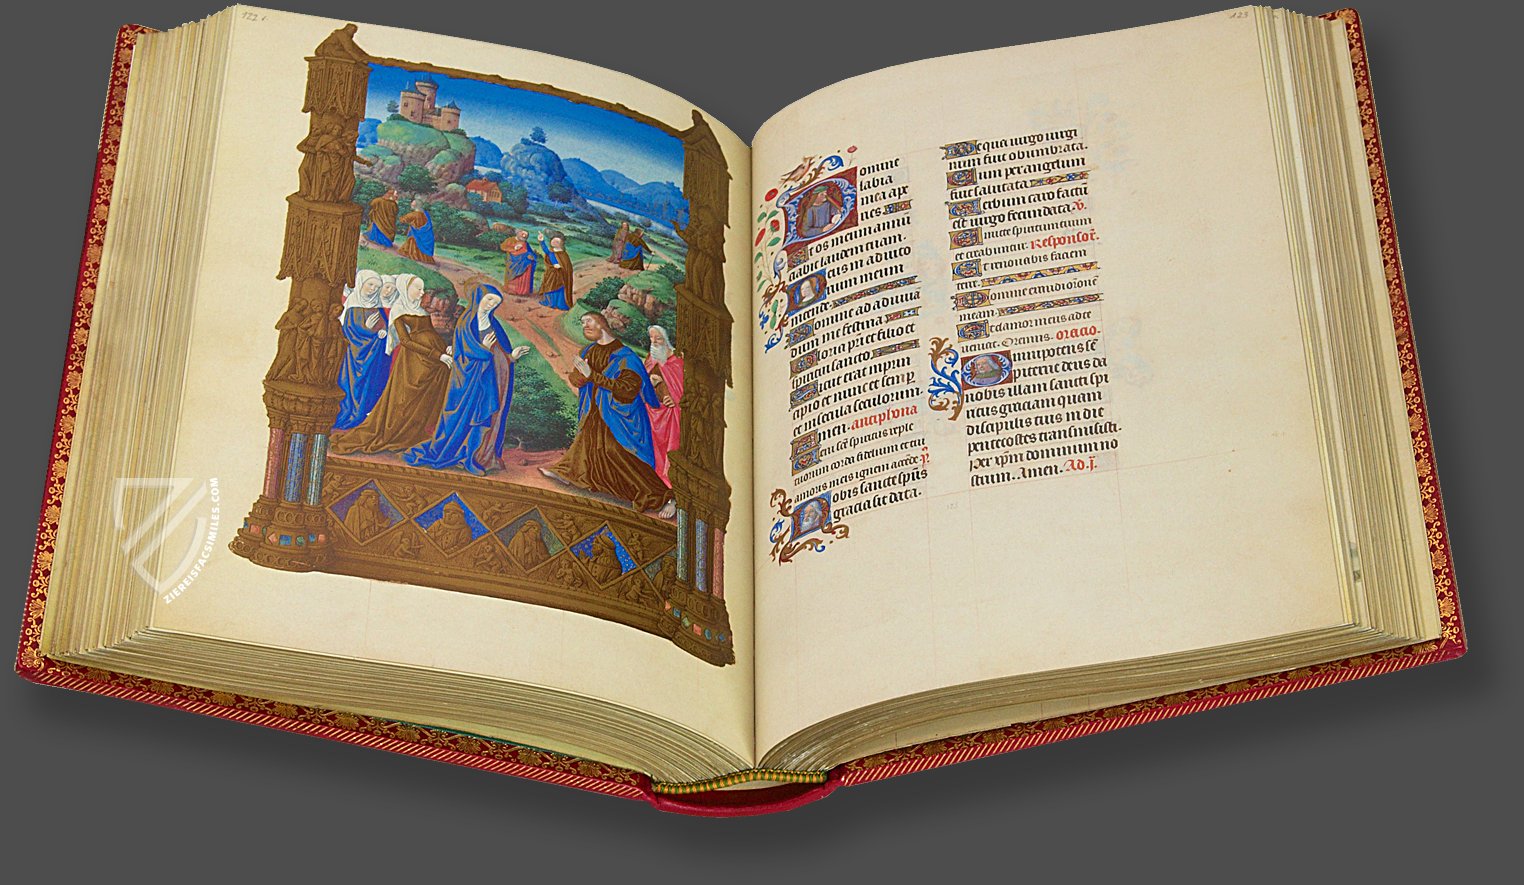 122
123
omine
labia
mea ape
ries
Et os meum annū
ciabit laudem tuam.
Deus in adiuto
rium meum
intende.
Domine ad adiuuā
dum me festina
Gloria pri et filio et
spiritui sancto
Sicut erat in prin
cipio et nunc et semp
et in secula seculorum.
Amen. antiphona
Veni scē spiritus reple
tuorum corda fidelium et tui
amoris in eis ignem accēde. p̄.
Nobis sancte spūs
gracia sit data.
De qua uirgo uirgi
num fuit obumbrata.
Cum per angelum
fuit salutata
Verbum caro factū
est uirgo fecundata. V.
Emitte spiritum tuum
et creabuntur. Responsor.
Et renouabis faciem
terre.
Domine exaudi orōne
meam.
Et clamor meus ad te
ueniat. Oremus. oracio.
Omnipotens sē
piterne deus da
nobis illam sancti spi
ritus graciam quam
discipulis tuis in die
pentecostes transmisisti.
Per xp̄m dominum no
strum. Amen. Ad .j.
ZIEREISFACSIMILES.COM